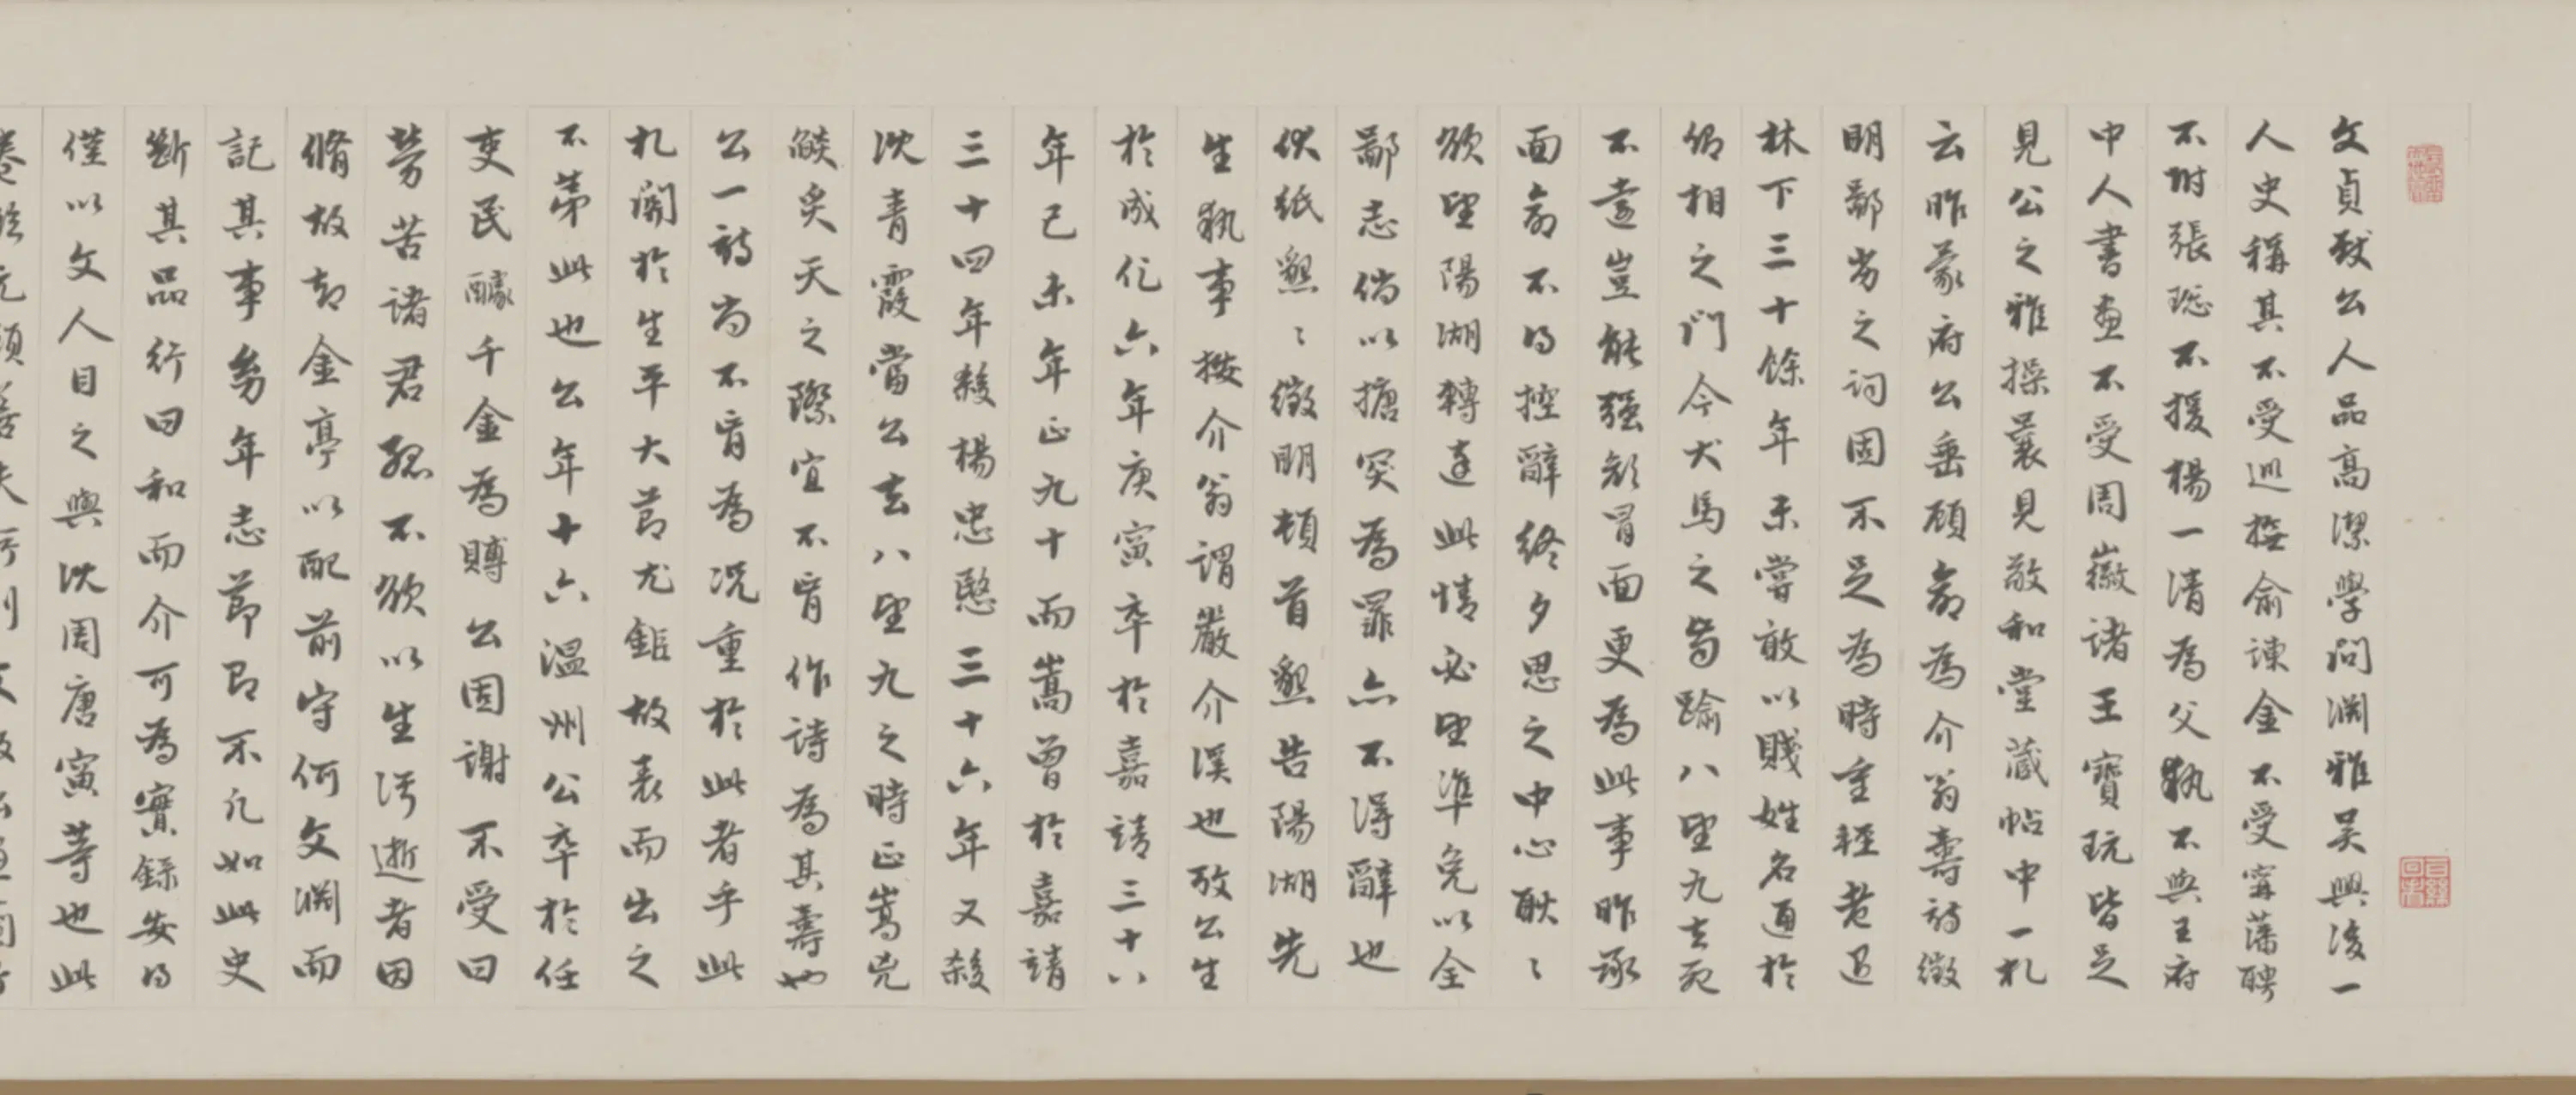 文貞致公人品高潔學問淵雅吴興後一
人史稱其不受巡撫俞諫金不受甯藩聘
不附張璁不援楊一清為父執不與王府
中人書画不受周徽諸王寶玩皆足
見公之雅操曩見敬和堂蔵帖中一札
云昨蒙府公垂顧命為介翁壽詩徵
明鄙劣之詞固不足為時重輕老退
林下三十餘年未嘗敢以賤姓名通於
卿相之門今犬馬之齒踰八望九去死
不遠豈能强顔冒面更為此事昨承
面命不得控辭終夕思之中心耿〻
欲望陽湖轉達此情必望準免以全
鄙志倘以搪突為罪亦不得辭也
伏紙懇〻徵明頓首懇告陽湖先
生執事 按介翁謂嚴介溪也攷公生
於成化六年庚寅卒於嘉靖三十八
年己未年正九十而嵩曾於嘉靖
三十四年殺楊忠愍三十六年又殺
沈青霞當公去八望九之時正嵩兇
燄炙天之際宜不肯作詩為其壽也
公一詩尚不肯為况重於此者乎此
札關於生平大節尤鉅故表而出之
不第此也公年十六温州公卒於任
吏民醵千金為賻公固謝不受曰
勞苦諸君孤不欲以生汚逝者因
脩故却金亭以配前守何文淵而
記其事幼年志節即不凡如此史
斷其品行曰和而介可為實錄安得
僅以文人目之與沈周唐寅等也此